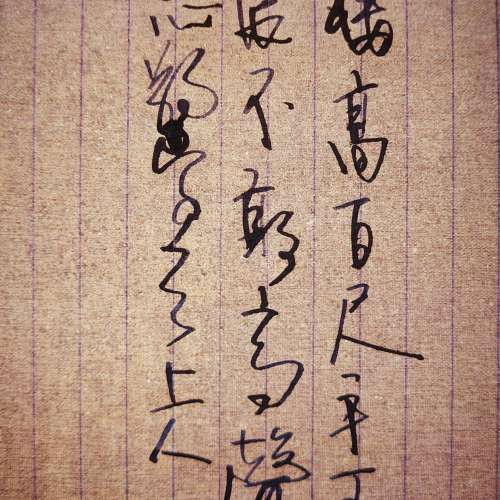 楼高百尺手
辰不敢高聲
恐驚天上人